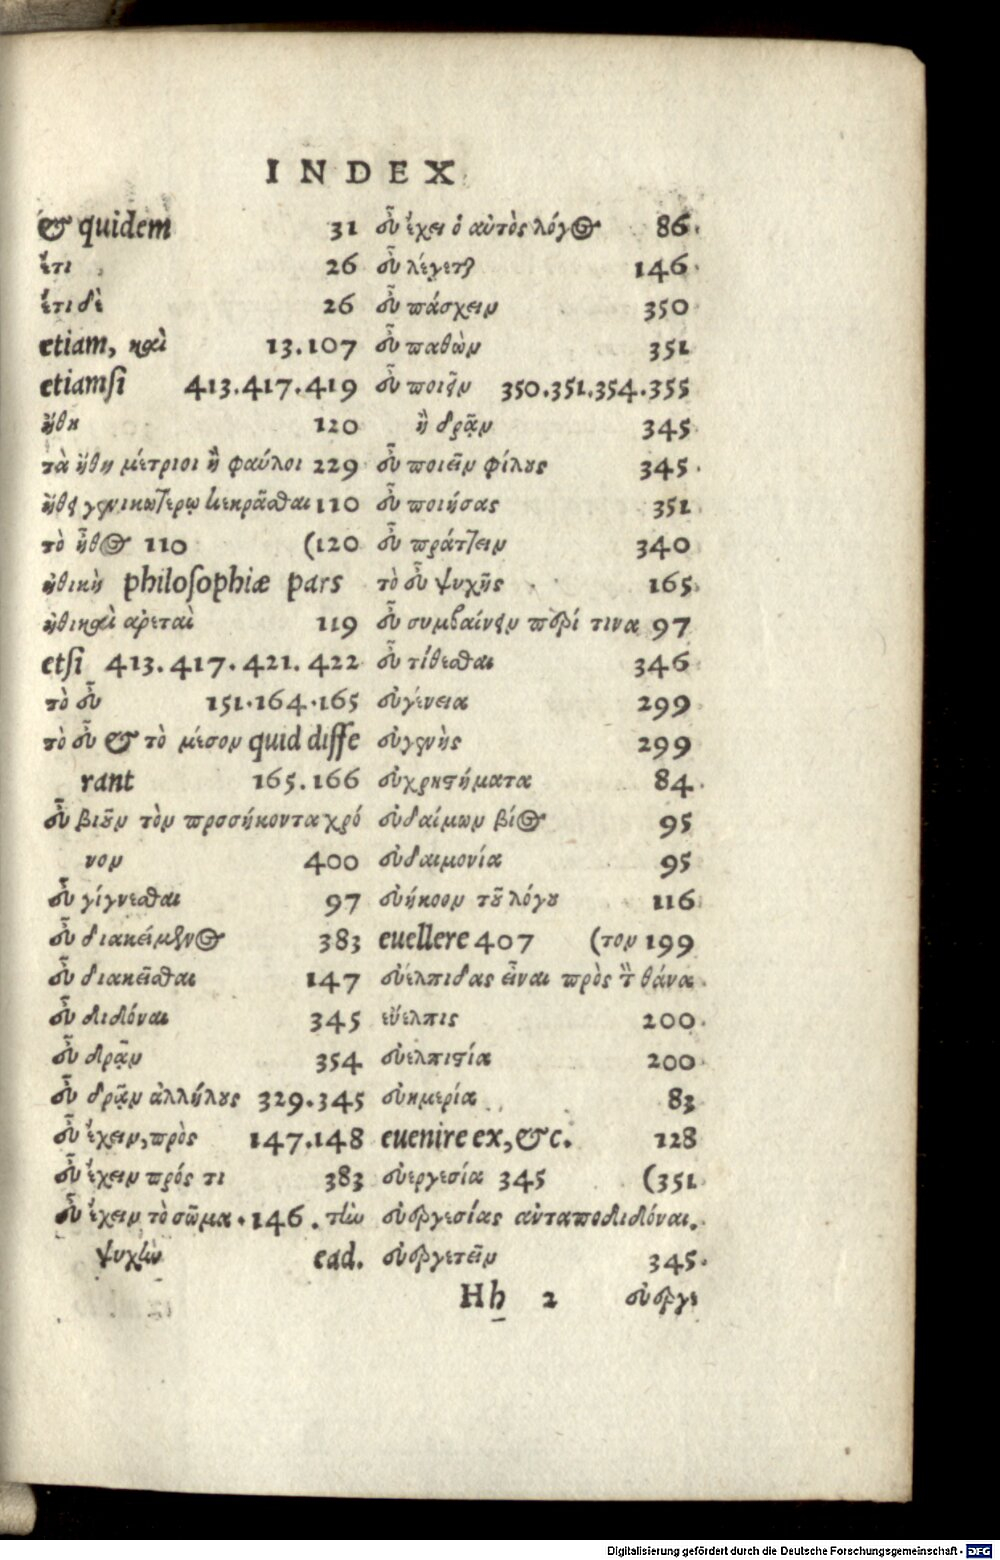 INDEX
& quidem 31
ἔτι 26
ἔτι δὲ 26
etiam, καὶ 13.107
etiamsi 413.417.419
ἤθη 120
τὰ ἤθη μέτριοι ἢ φαύλοι 229
ἤθει γενικωτέρῳ κεκρᾶσθαι 110
τὸ ἦθος 110 (120
ἠθικὴ philosophiæ pars
ἠθικαὶ αρεταὶ 119
etsi 413. 417. 421. 422
τὸ εὖ 151.164.165
τὸ εὖ & τὸ μέσον quid diffe
rant 165.166
εὖ βιοῦν τὸν προσήκοντα χρό
νον 400
εὖ γίγνεσθαι 97
εὖ διακείμενος 383
εὖ διακεῖσθαι 147
εὖ διδόναι 345
εὖ δρᾷν 354
εὖ δρᾷν ἀλλήλους 329.345
εὖ ἔχειν, πρὸς 147.148
εὖ ἔχειν πρός τι 383
εὖ ἔχειν τὸ σῶμα. 146. τὴν
ψυχὴν ead.
εὖ ἔχει ὁ αὐτὸς λόγος 86.
εὖ λέγεται 146.
εὖ πάσχειν 350
εὖ παθὼν 351
εὖ ποιεῖν 350.351.354.355
ἢ δρᾷν 345
εὖ ποιεῖν φίλους 345.
εὖ ποιήσας 351
εὖ πράττειν 340
τὸ εὖ ψυχῆς 165.
εὖ συμβαίνειν περί τινα 97
εὖ τίθεσθαι 346
εὐγένεια 299
εὐγενὴς 299
εὐχρηστήματα 84.
εὐδαίμων βίος 95
εὐδαιμονία 95
εὐήκοον τοῦ λόγου 116
euellere 407 (τον 199
εὐέλπιδας εἶναι πρὸς τὸν θάνα
εὔελπις 200.
εὐελπιστία 200
εὐημερία 83
euenire ex, &c. 128
εὐεργεσία 345 (351
εὐεργεσίας αὐταποδιδόναι.
εὐεργετεῖν 345.
Hh 2 εὐεργε
Digitalisierung gefördert durch die Deutsche Forschungsgemeinschaft - DFG